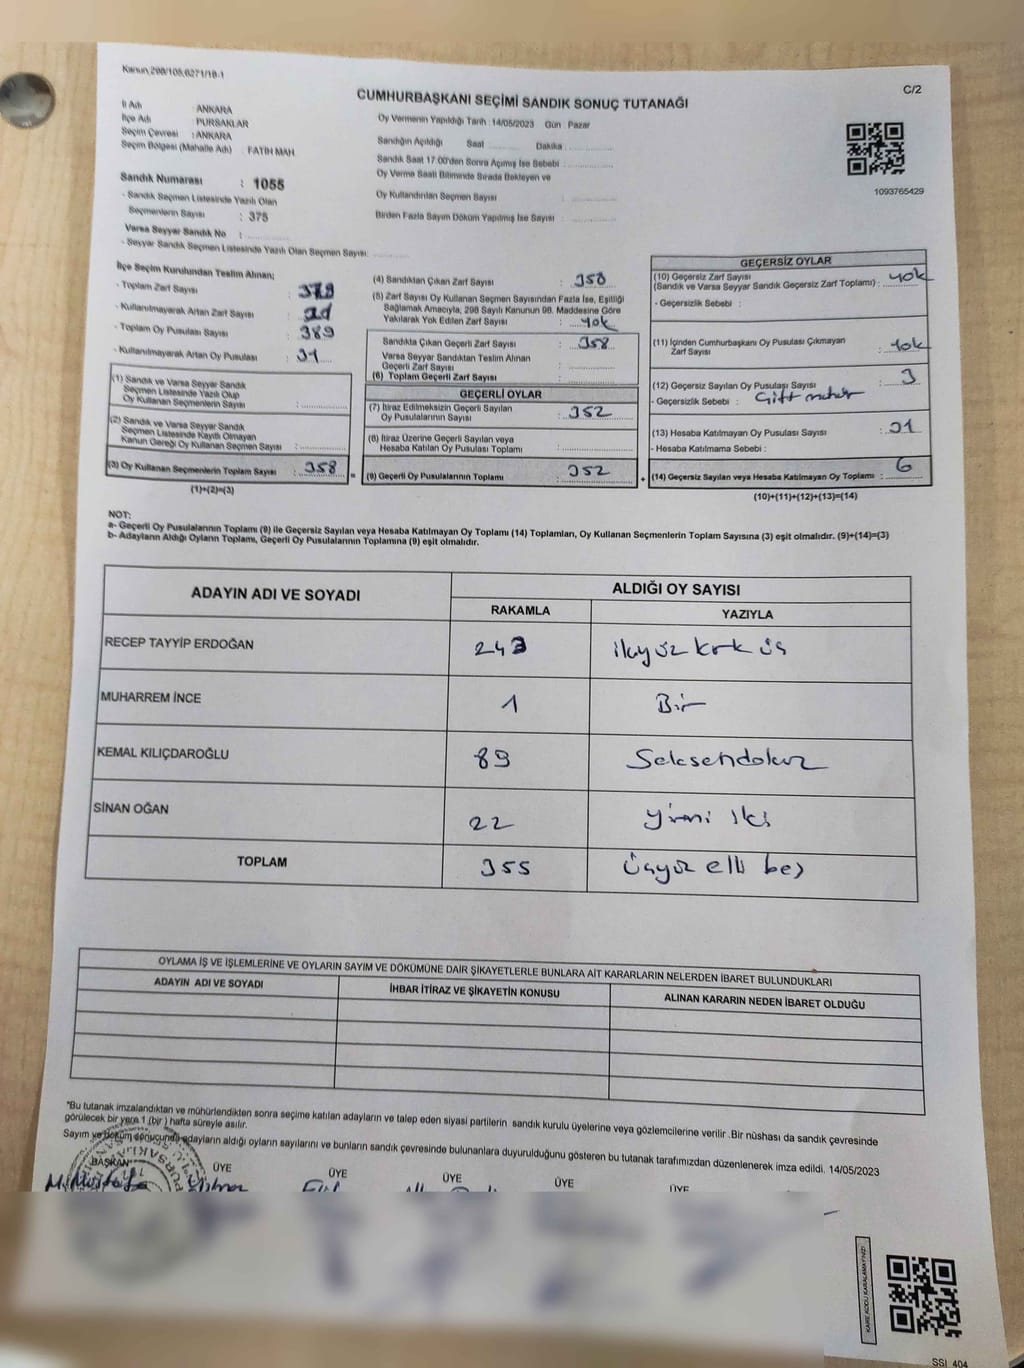 Kanun,298/105,6271/18-1
C/2
CUMHURBAŞKANI SEÇİMİ SANDIK SONUÇ TUTANAĞI
İl Adı : ANKARA
İlçe Adı : PURSAKLAR
Seçim Çevresi : ANKARA
Seçim Bölgesi (Mahalle Adı) : FATİH MAH
Oy Vermenin Yapıldığı Tarih : 14/05/2023 Gün : Pazar
Sandığın Açıldığı Saat Dakika
Sandık Saat 17:00'den Sonra Açımış İse Sebebi :
Oy Verme Saati Bitiminde Sırada Bekleyen ve
Oy Kullandırılan Seçmen Sayısı :
Birden Fazla Sayım Döküm Yapılmış İse Sayısı :
1093765429
Sandık Numarası : 1055
- Sandık Seçmen Listesinde Yazılı Olan
Seçmenlerin Sayısı : 375
Varsa Seyyar Sandık No :
- Seyyar Sandık Seçmen Listesinde Yazılı Olan Seçmen Sayısı:
İlçe Seçim Kurulundan Teslim Alınan;
- Toplam Zarf Sayısı : 379
- Kullanılmayarak Artan Zarf Sayısı : 21
- Toplam Oy Pusulası Sayısı : 389
- Kullanılmayarak Artan Oy Pusulası : 31
(1) Sandık ve Varsa Seyyar Sandık
Seçmen Listesinde Yazılı Olup
Oy Kullanan Seçmenlerin Sayısı :
(2) Sandık ve Varsa Seyyar Sandık
Seçmen Listesinde Kayıtlı Olmayan
Kanun Gereği Oy Kullanan Seçmen Sayısı :
(3) Oy Kullanan Seçmenlerin Toplam Sayısı : 358
(1)+(2)=(3)
(4) Sandıktan Çıkan Zarf Sayısı : 358
(5) Zarf Sayısı Oy Kullanan Seçmen Sayısından Fazla İse, Eşitliği
Sağlamak Amacıyla, 298 Sayılı Kanunun 98. Maddesine Göre
Yakılarak Yok Edilen Zarf Sayısı : yok
Sandıkta Çıkan Geçerli Zarf Sayısı : 358
Varsa Seyyar Sandıktan Teslim Alınan
Geçerli Zarf Sayısı :
(6) Toplam Geçerli Zarf Sayısı :
GEÇERLİ OYLAR
(7) İtiraz Edilmeksizin Geçerli Sayılan
Oy Pusulalarının Sayısı : 352
(8) İtiraz Üzerine Geçerli Sayılan veya
Hesaba Katılan Oy Pusulası Toplamı :
(9) Geçerli Oy Pusulalarının Toplamı : 352
GEÇERSİZ OYLAR
(10) Geçersiz Zarf Sayısı
(Sandık ve Varsa Seyyar Sandık Geçersiz Zarf Toplamı) : yok
- Geçersizlik Sebebi :
(11) İçinden Cumhurbaşkanı Oy Pusulası Çıkmayan
Zarf Sayısı : yok
(12) Geçersiz Sayılan Oy Pusulası Sayısı : 3
- Geçersizlik Sebebi : Çift mühür
(13) Hesaba Katılmayan Oy Pusulası Sayısı : 31
- Hesaba Katılmama Sebebi :
(14) Geçersiz Sayılan veya Hesaba Katılmayan Oy Toplamı : 6
(10)+(11)+(12)+(13)=(14)
NOT:
a- Geçerli Oy Pusulalarının Toplamı (9) ile Geçersiz Sayılan veya Hesaba Katılmayan Oy Toplamı (14) Toplamları, Oy Kullanan Seçmenlerin Toplam Sayısına (3) eşit olmalıdır. (9)+(14)=(3)
b- Adayların Aldığı Oyların Toplamı, Geçerli Oy Pusulalarının Toplamına (9) eşit olmalıdır.
ADAYIN ADI VE SOYADI ALDIĞI OY SAYISI
RAKAMLA YAZIYLA
RECEP TAYYİP ERDOĞAN 243 ikiyüz kırk üç
MUHARREM İNCE 1 Bir
KEMAL KILIÇDAROĞLU 89 Seksendokuz
SİNAN OĞAN 22 yirmi iki
TOPLAM 355 Üçyüz elli beş
OYLAMA İŞ VE İŞLEMLERİNE VE OYLARIN SAYIM VE DÖKÜMÜNE DAİR ŞİKAYETLERLE BUNLARA AİT KARARLARIN NELERDEN İBARET BULUNDUKLARI
ADAYIN ADI VE SOYADI İHBAR İTİRAZ VE ŞİKAYETİN KONUSU ALINAN KARARIN NEDEN İBARET OLDUĞU
"Bu tutanak imzalandıktan ve mühürlendikten sonra seçime katılan adayların ve talep eden siyasi partilerin sandık kurulu üyelerine veya gözlemcilerine verilir .Bir nüshası da sandık çevresinde
görülecek bir yere 1 (bir ) hafta süreyle asılır.
Sayım ve döküm sonucunda adayların aldığı oyların sayılarını ve bunların sandık çevresinde bulunanlara duyurulduğunu gösteren bu tutanak tarafımızdan düzenlenerek imza edildi. 14/05/2023
BAŞKAN ÜYE ÜYE ÜYE ÜYE ÜYE
KARE KODU KARALAMAYINIZ!
SSİ 404